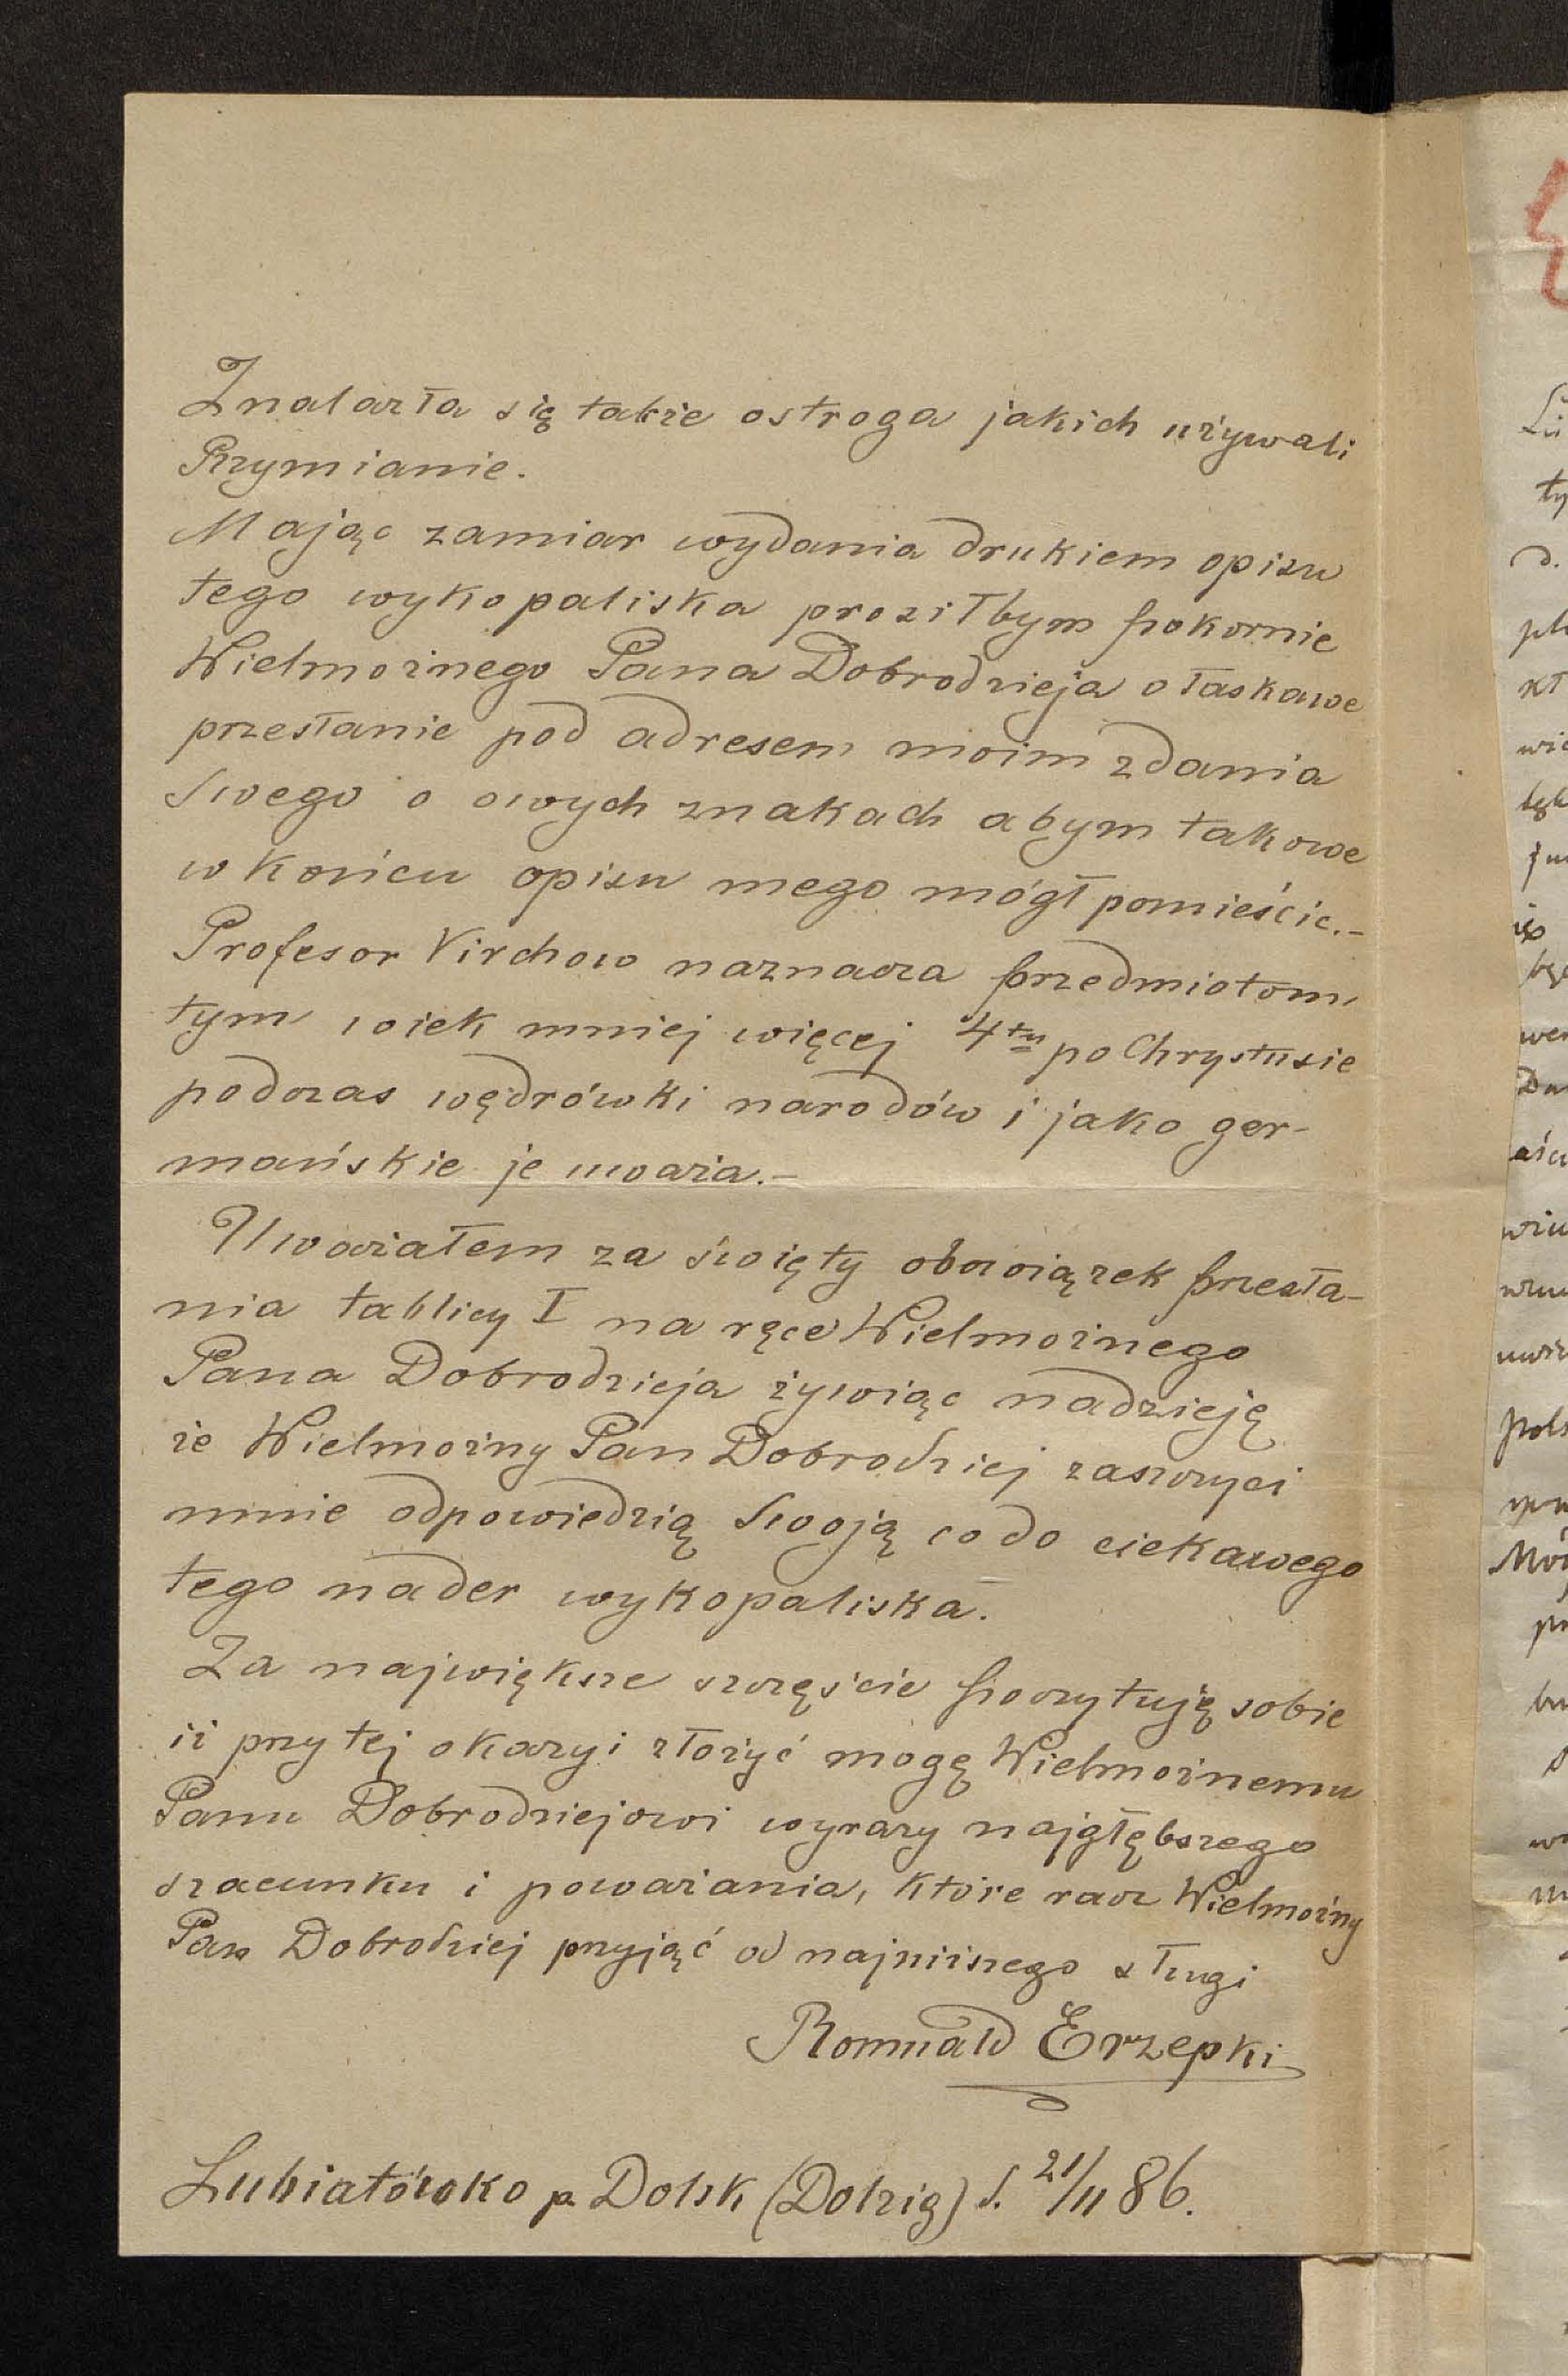 Znalazła się także ostroga jakich używali
Rzymianie.
Mając zamiar wydania drukiem opisu
tego wykopaliska prosiłbym pokornie
Wielmożnego Pana Dobrodzieja o łaskawe
przesłanie pod adresem moim zdania
Swego o owych znakach abym takowe
w końcu opisu mego mógł pomieścić.-
Profesor Virchow naznacza przedmiotom
tym wiek mniej więcej 4ty po Chrystusie
podczas wędrówki narodów i jako ger-
mańskie je uważa.-
Uważałem za święty obowiązek przesła-
nia tablicy I na ręce Wielmożnego
Pana Dobrodzieja żywiąc nadzieję
że Wielmożny Pan Dobrodziej zaszczyci
mnie odpowiedzią Swoją co do ciekawego
tego nader wykopaliska.
Za największe szczęście poczytuję sobie
iż przy tej okazyi złożyć mogę Wielmożnemu
Panu Dobrodziejowi wyrazy najgłębszego
szacunku i poważania, które racz Wielmożny
Pan Dobrodziej przyjąć od najniższego sługi
Romuald Erzepki
Lubiatówko p. Dolsk (Dolzig) d. 21/11 86.